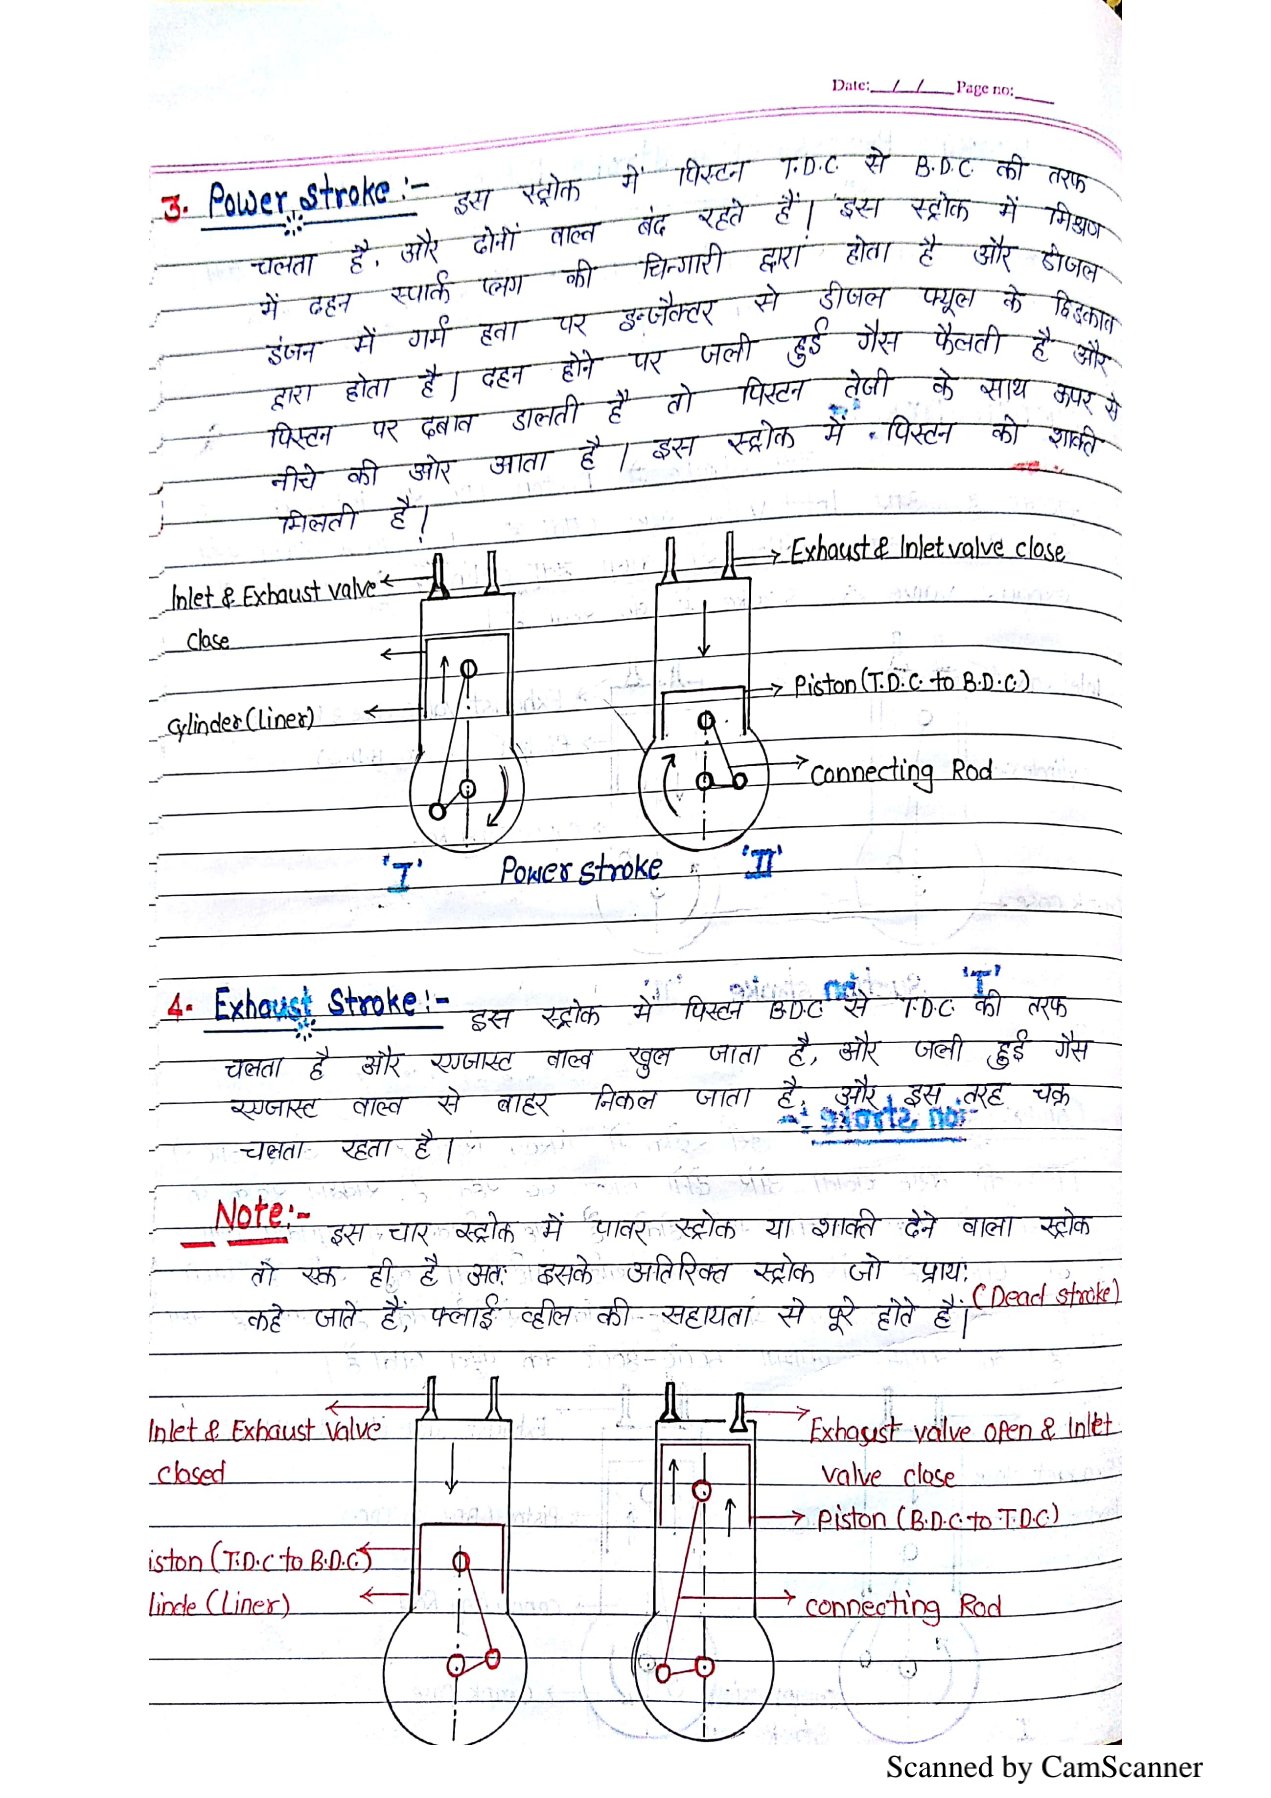 Date: / / Page no:
3. Power stroke :- इस स्ट्रोक में पिस्टन T.D.C से B.D.C की तरफ
चलता है, और दोनों वाल्व बंद रहते हैं। इस स्ट्रोक में मिश्रण
में दहन स्पार्क प्लग की चिन्गारी द्वारा होता है और डीजल
इंजन में गर्म हवा पर इन्जैक्टर से डीजल फ्यूल के छिड़काव
द्वारा होता है। दहन होने पर जली हुई गैस फैलती है और
पिस्टन पर दबाव डालती है तो पिस्टन तेजी के साथ ऊपर से
नीचे की ओर आता है। इस स्ट्रोक में पिस्टन को शक्ति
मिलती है।
Exhaust & Inlet valve close
Inlet & Exhaust valve
close
Piston (T.D.C. to B.D.C.)
cylinder (Liner)
connecting Rod
'I' Power stroke 'II'
4. Exhaust Stroke :- इस स्ट्रोक में पिस्टन B.D.C से T.D.C की तरफ
चलता है और एग्जास्ट वाल्व खुल जाता है, और जली हुई गैस
एग्जास्ट वाल्व से बाहर निकल जाता है, और इस तरह चक्र
चलता रहता है।
Note :- इस चार स्ट्रोक में पावर स्ट्रोक या शक्ति देने वाला स्ट्रोक
तो एक ही है अतः इसके अतिरिक्त स्ट्रोक जो प्रायः
(Dead stroke)
कहे जाते हैं, फ्लाई व्हील की सहायता से पूरे होते हैं।
Inlet & Exhaust valve
closed
Exhaust valve open & Inlet
valve close
Piston (B.D.C. to T.D.C)
iston (T.D.C to B.D.C.)
linde (Liner)
connecting Rod
Scanned by CamScanner